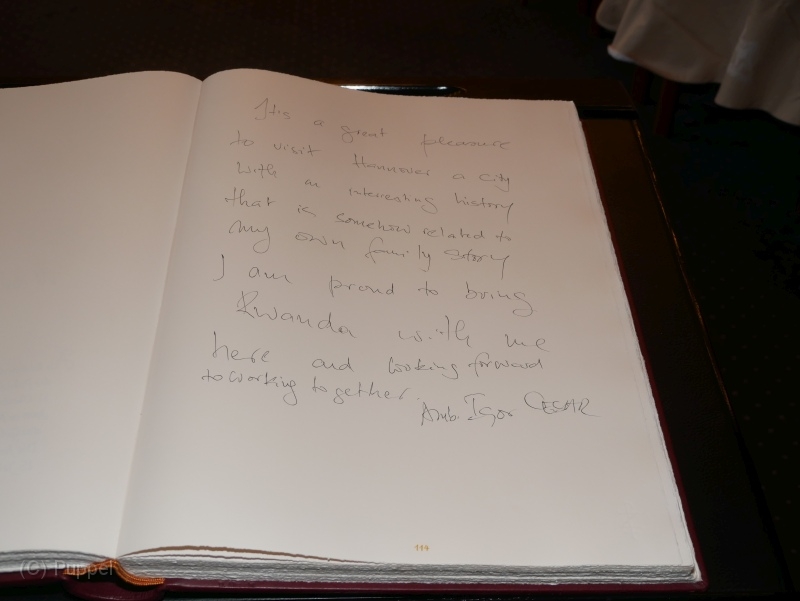 It is a great pleasure
to visit Hannover a city
with an interesting history
that is somehow related to
my own family story
I am proud to bring
Rwanda with me
here and looking forward
to working together.
Amb. Igor CESAR
114
(C) Puppel